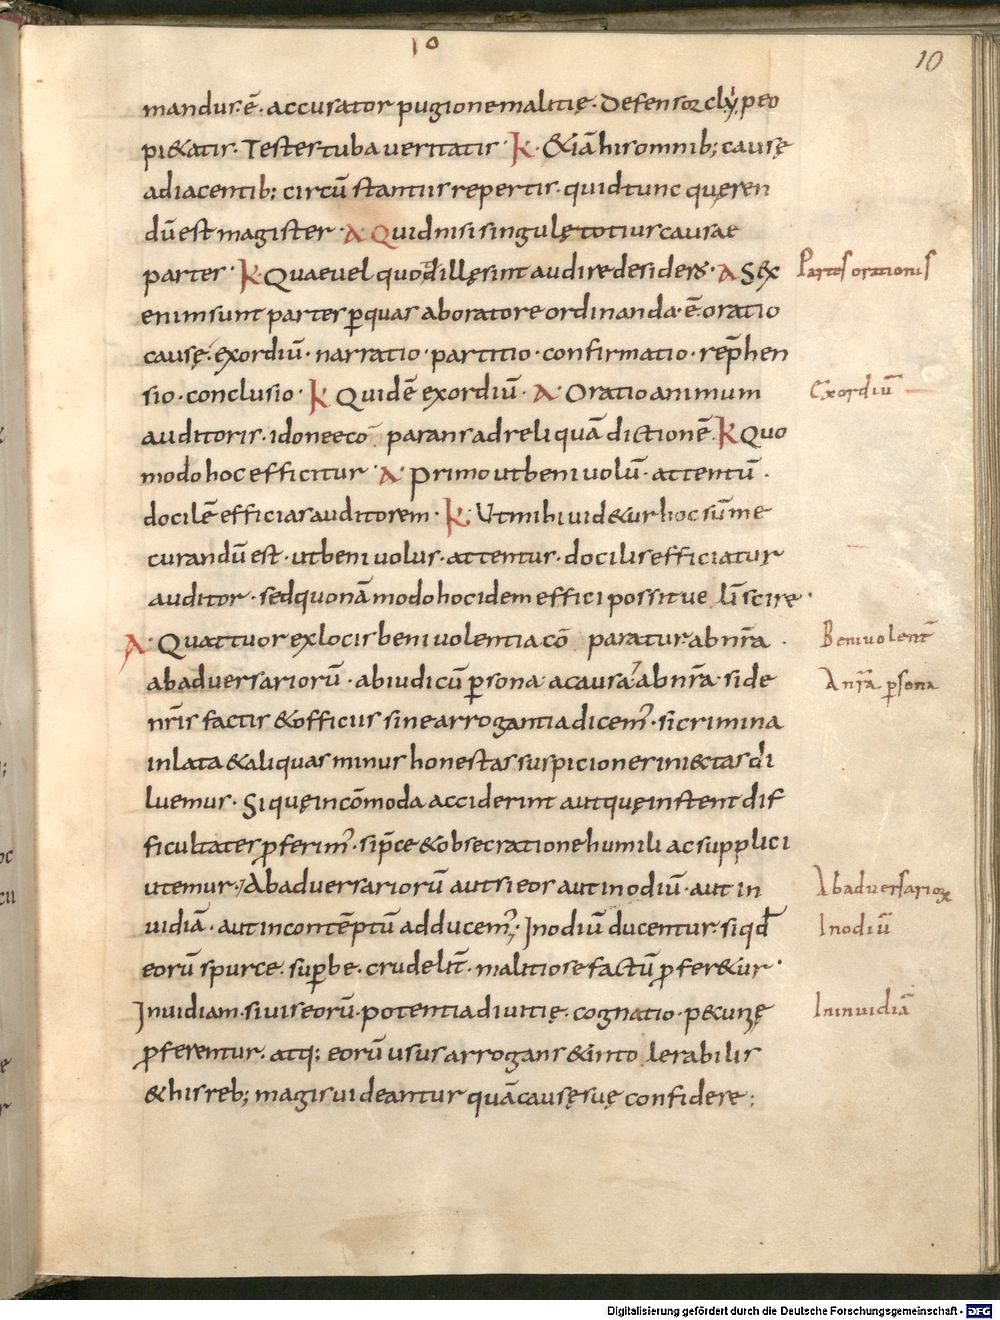 10
10
mandus ē. accusator pugione malitię. Defensor clypeo
pi&atis. Testes tuba veritatis. K. &iā his omnib; causę
adiacentib; circūstantiis repertis. quid tunc quęren
dū est magister. A. Quid nisi singulę totius causae
partes. K. Quae vel quot illę sint audire desiders. A. Sex
Partes orationis
enim sunt partes p quas ab oratore ordinanda ē oratio
causę. exordiū. narratio. partitio. confirmatio. rep̄hen
sio. conclusio. K Quid ē exordiū. A. Oratio animum
Exordiū
auditoris. idonee cō parans ad reliquā dictionē. K Quo
modo hoc efficitur. A. Primo ut benivolū. attentū.
docilē efficias auditorem. K. Ut mihi vid&ur hoc sūme
curandū est. ut benivolus. attentus. docilis efficiatur
auditor. sed quonā modo hoc idem effici possit ve lī scire.
A. Quattuor ex locis benivolentia cō paratur ab nr̄a.
Benivolent̄
ab adversariorū. ab iudicū psona a causa. ab nr̄a. si de
A nr̄a psona
nr̄is factis & officiis sine arrogantia dicem'. si crimina
inlata & aliquas minus honestas suspiciones iniectas di
luemus. Si quę incōmoda acciderint aut quę instent dif
ficultates pferim'. si p̄ce & obsecratione humili ac supplici
utemur. Ab adversariorū aut si eos aut in odiū. aut in
Ab adversarioꝝ
vidiā. aut in contēptū adducem'; In odiū ducentur. si qd̄
In odiū
eorū spurce. supbe. crudelit̄. malitiose factū pfer&ur.
Invidiam. si vis eorū. potentia divitię. cognatio. pecunię
In invidiā
pferentur. atq; eorū usus arrogans & into lerabilis
& his reb; magis videantur quā causę suę confidere;
Digitalisierung gefördert durch die Deutsche Forschungsgemeinschaft - DFG